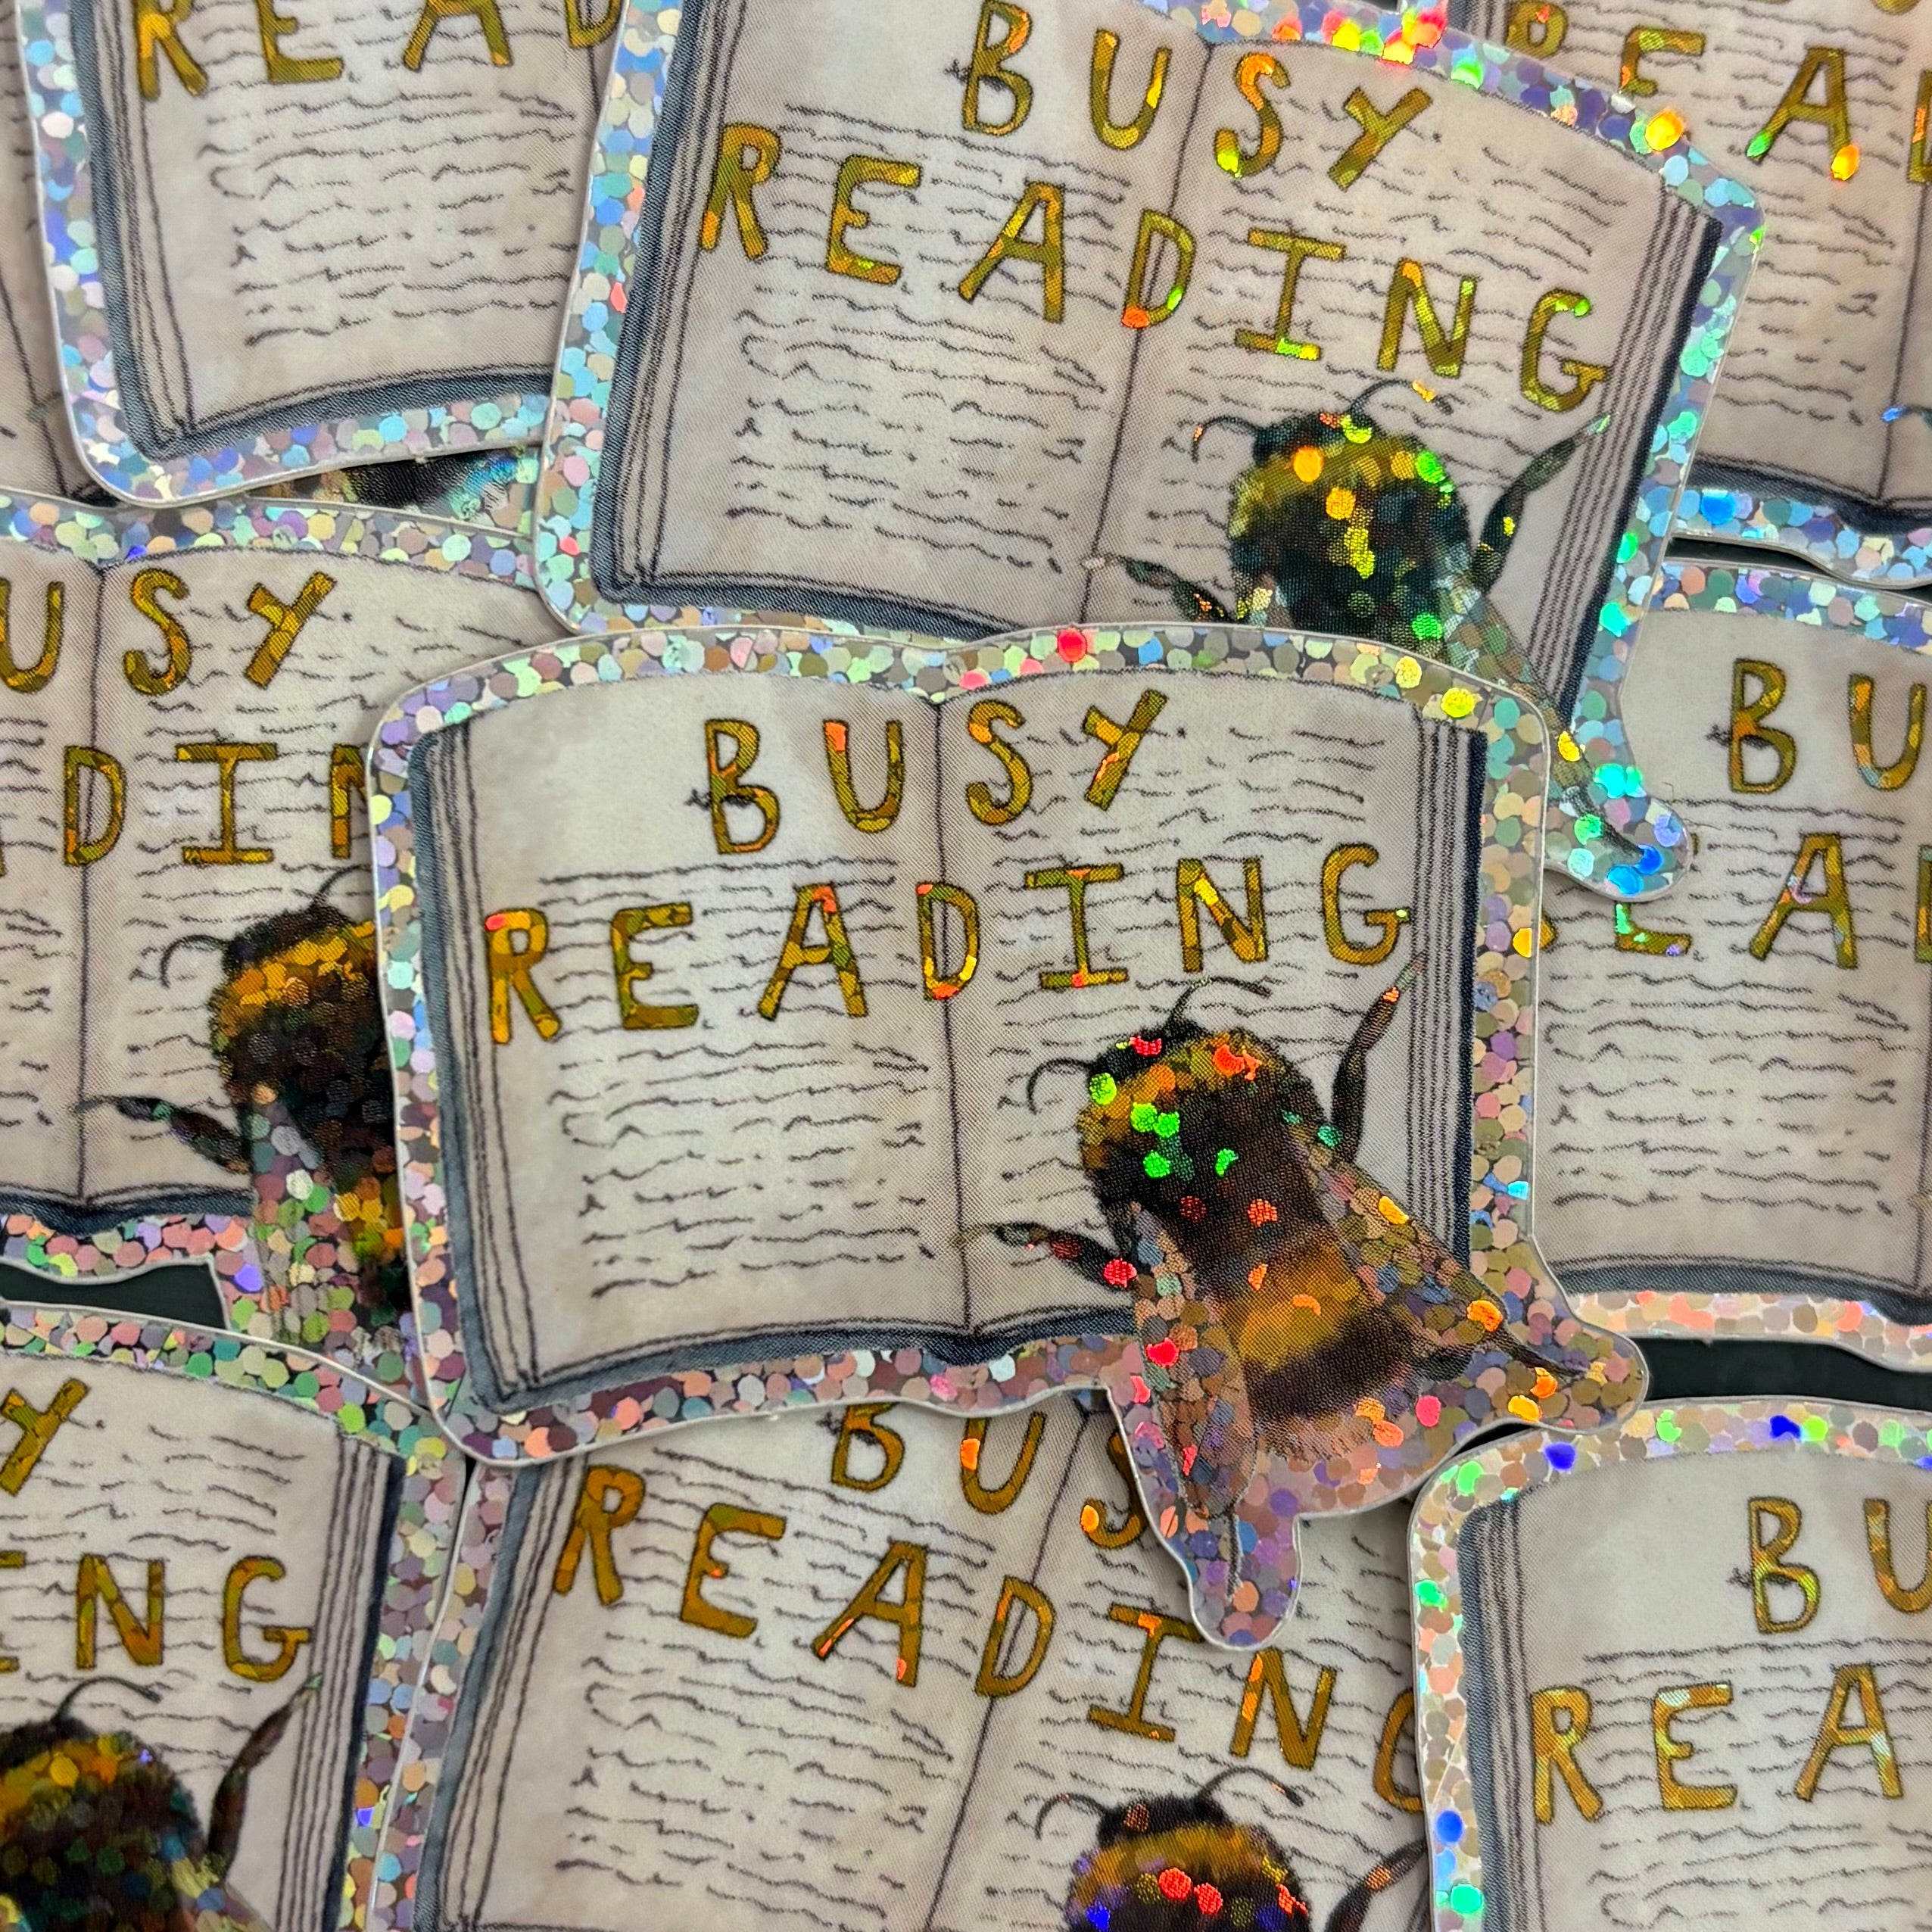 READ
BUSY
READING
READ
USY
ADIN
BUSY
READING
BU
EA
Y
ING
BUS
READING
BU
REA